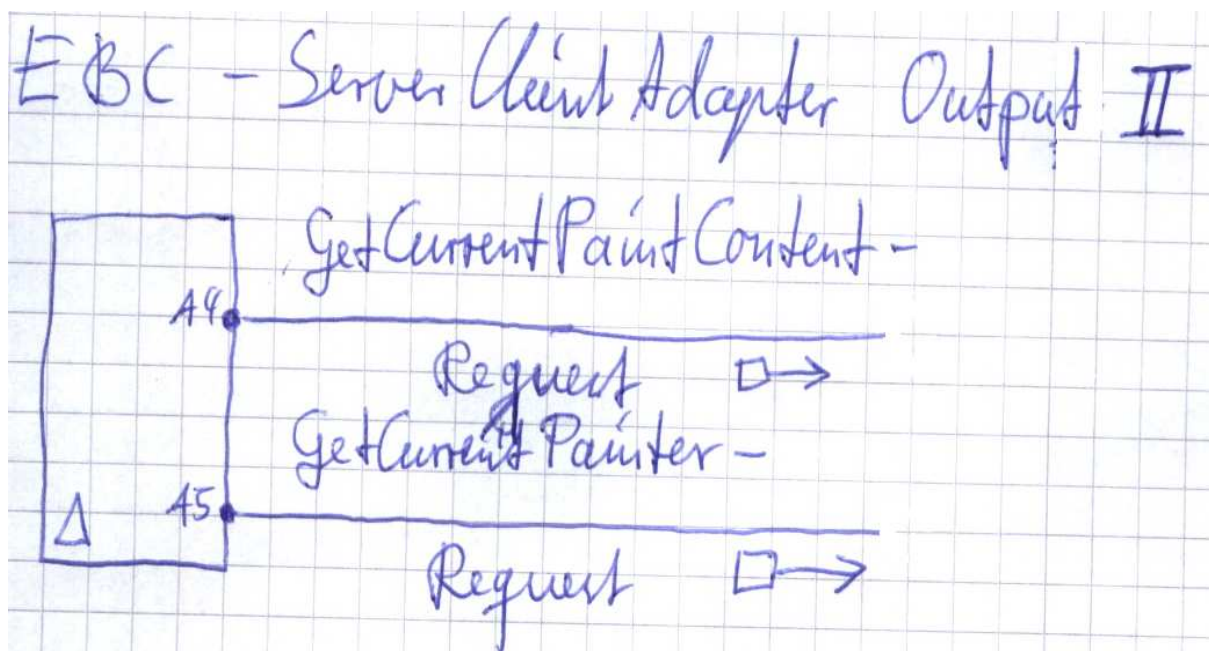 EBC - ServerClientAdapter Output II
GetCurrentPaintContent-
A4
Request
GetCurrentPainter-
A5
Request